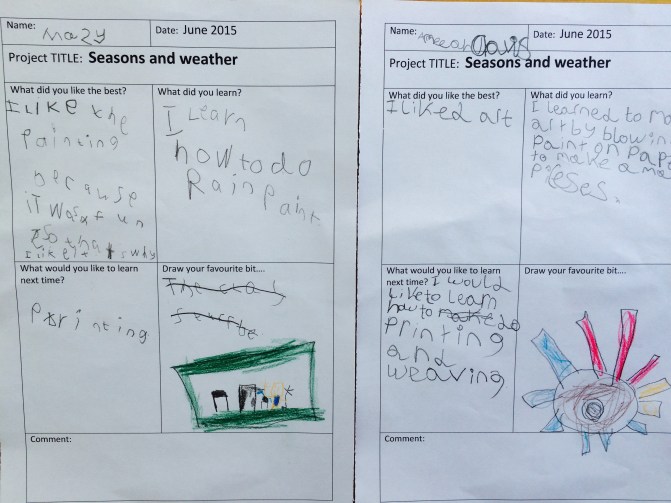 Name: Mazy
Date: June 2015
Project TITLE: Seasons and weather
What did you like the best?
I LIKE the
painting
because
iT was a f un
so that s why
I like it
What did you learn?
I Learn
how to do
Rain paint
What would you like to learn
next time?
Printing
Draw your favourite bit....
Comment:
Name: Ameeah Davis
Date: June 2015
Project TITLE: Seasons and weather
What did you like the best?
I liked art
What did you learn?
I learned to ma
art by blowin
paint on pap
to make a ma
pieses.
What would you like to learn
next time? I would
Like to learn
how to do
printing
and
weaving
Draw your favourite bit....
Comment: